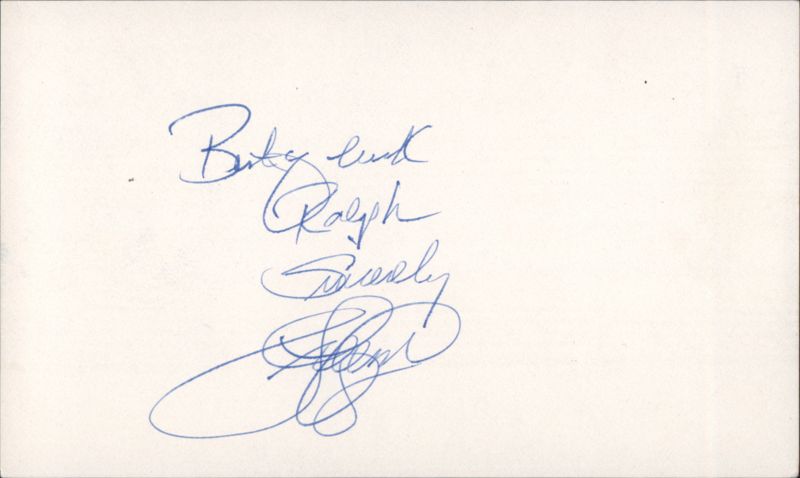 Best of luck
Ralph
Sincerely